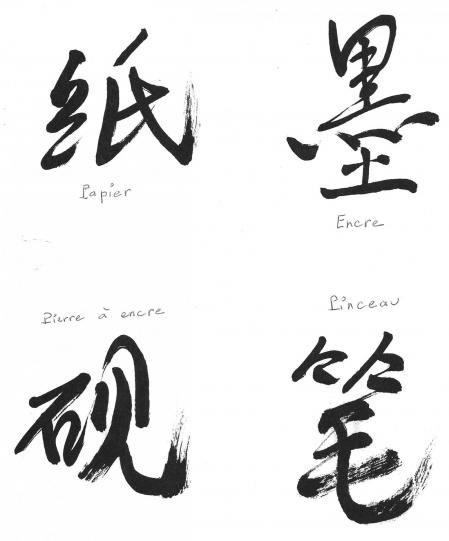 纸
Papier
墨
Encre
Pierre à encre
砚
Pinceau
笔